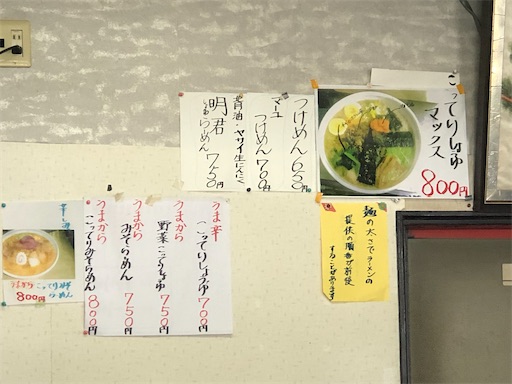 こってりしょゆ
マックス
800円
つけめん 650円
マーユ
つけめん 700円
背油・ヤサイ・生にんにく
明君
らぁめん 750円
麺の太さでラーメンの
提供の順番が前後
することがあります
うま辛
こってりしょうゆ 700円
うまから
野菜こってりしょゆ 750円
うまから
みそらぁめん 750円
うまから
こってりみそらぁめん 800円
うまから こってりみそ
800円 らーめん